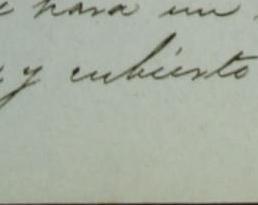 para un
y cubierto